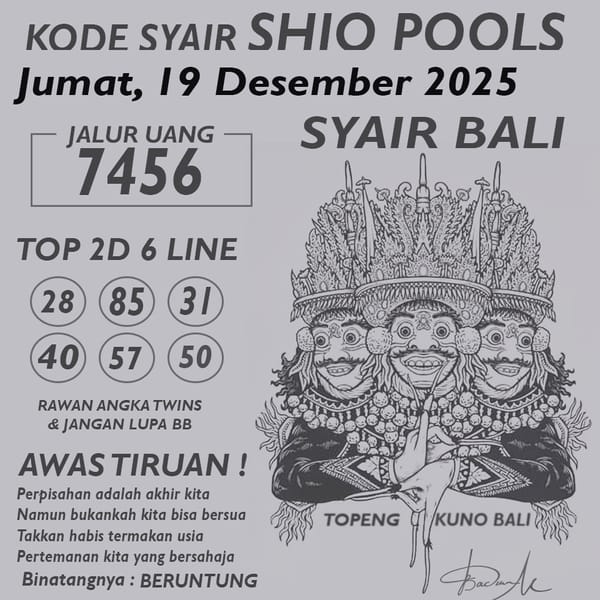 KODE SYAIR SHIO POOLS
Jumat, 19 Desember 2025
JALUR UANG
7456
SYAIR BALI
TOP 2D 6 LINE
28 85 31
40 57 50
RAWAN ANGKA TWINS
& JANGAN LUPA BB
AWAS TIRUAN !
Perpisahan adalah akhir kita
Namun bukankah kita bisa bersua
Takkan habis termakan usia
Pertemanan kita yang bersahaja
Binatangnya : BERUNTUNG
TOPENG KUNO BALI